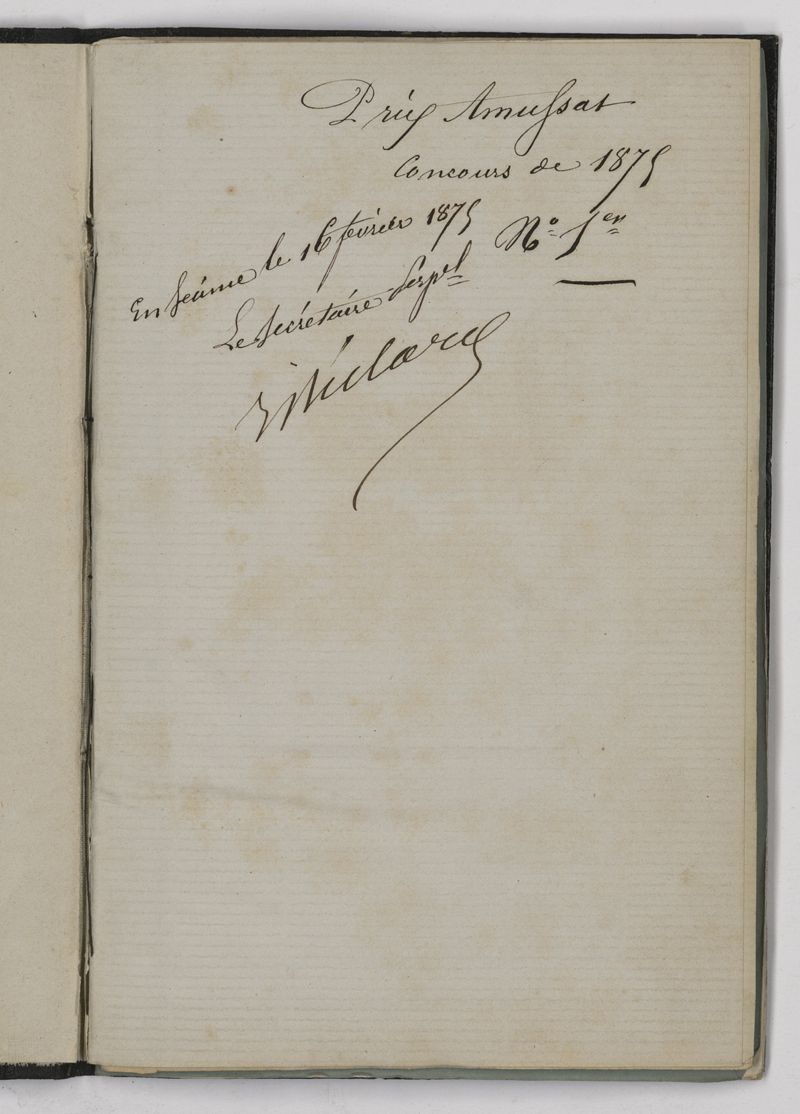 Prix Amussat
Concours de 1875
N° 1er
En séance le 16 février 1875
Le Secrétaire Perpel
J Béclard